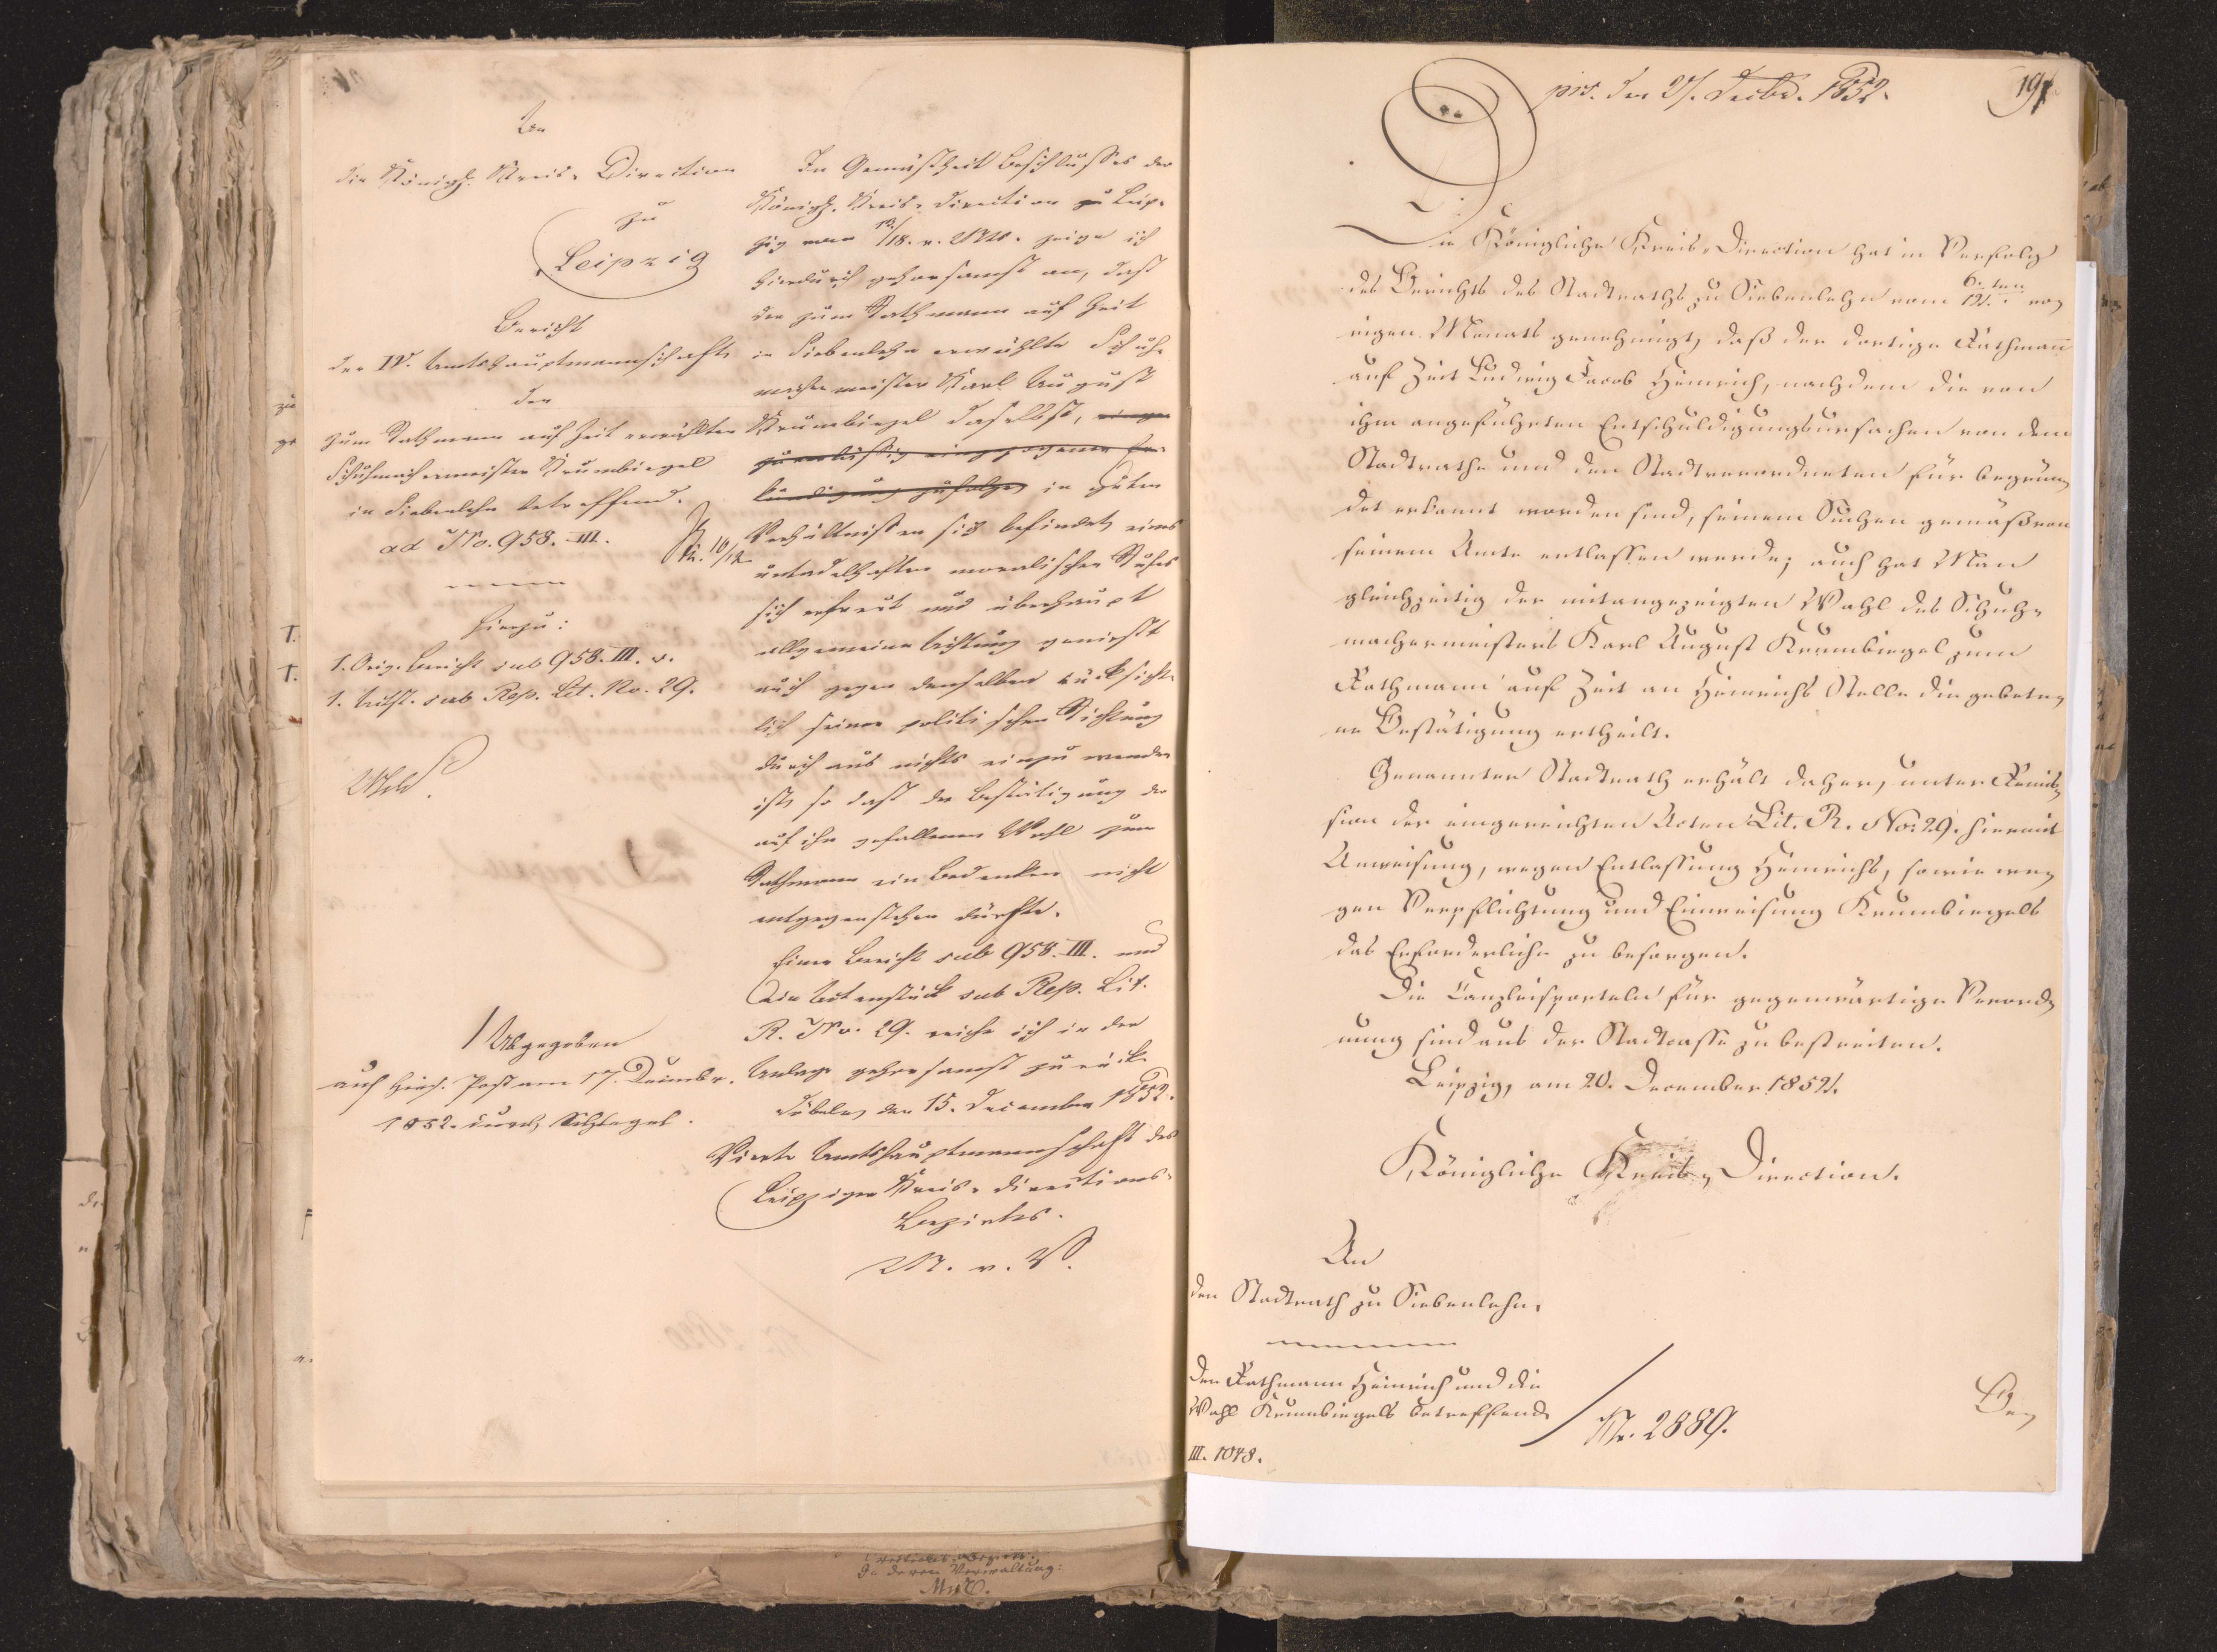 An
die Königl. Kreis-Direction
zu
Leipzig
Bericht
der IV. Amtshauptmannschaft,
den
zum Rathmann auf Zeit erwählten
Schuhmachermeister Krumbiegel
in Siebenlehn betreffend.
ad No. 958. III.
hierzu:
1. Orig. Bericht sub 958. III. v.
1. Actst. sub Rep. Lit. No. 29.
Abgegeben
auf hies. Post am 17. Decembr.
1852. durch
In Gemäßheit Beschlusses der
Königl. Kreis-Direction zu Leip-
zig vom 13./18. v. Mts. zeige ich
hierdurch gehorsamst an, daß
der zum Rathmann auf Zeit
in Siebenlehn erwählte Schuh-
machermeister Karl August
Krumbiegel daselbst,
zuverlässig eingezogener Er-
kundigung zufolge, in guten
Verhältnissen sich befindet, eines
untadelhaften moralischen Rufes
sich erfreut und überhaupt
allgemeine Achtung genießt
auch gegen denselben rücksicht-
lich seiner politischen Richtung
durchaus nichts einzuwenden
ist, so daß der Bestätigung der
auf ihn gefallenen Wahl zum
Rathmann ein Bedenken nicht
entgegenstehen dürfte.
Einen Bericht sub 958. III. und
Ein Actenstück sub Rep. Lit.
R. No. 29. reiche ich in der
Anlage gehorsamst zurück.
Döbeln, den 15. December 1852.
Vierte Amtshauptmannschaft des
Leipziger Kreis-Directions-
Bezirkes.
M. v. W.
In deren Verwaltung:
prs. den 27. Decbr. 1852.
191
Die Königliche Kreis-Direction hat in Verfolg
des Berichts des Stadtraths zu Siebenlehn vom 6. ten/12. vo-
rigen Monats genehmigt, daß der dortige Rathmann
auf Zeit Ludwig Jacob Heinrich, nachdem die von
ihm angeführten Entschuldigungsursachen von dem
Stadtrathe und den Stadtverordneten für begrün-
det erkannt worden sind, seinem Suchen gemäß von
seinem Amte entlassen werde; auch hat Man
gleichzeitig der mitangezeigten Wahl des Schuh-
machermeisters Karl August Krumbiegel zum
Rathmann auf Zeit an Heinrichs Stelle die gebete-
ne Bestätigung ertheilt.
Genannter Stadtrath erhält daher, unter Remis-
sion der eingereichten Acten Lit. R. No: 29. hiermit
Anweisung, wegen Entlassung Heinrichs, sowie we-
gen Verpflichtung und Einweisung Krumbiegels
das Erforderliche zu besorgen.
Die Canzleisporteln für gegenwärtige Verord-
nung sind aus der Stadtcasse zu bestreiten.
Leipzig, am 20. December 1852.
Königliche Kreis-Direction.
An
den Stadtrath zu Siebenlehn.
Den Rathmann Heinrich und die
Wahl Krumbiegels betreffend.
III. 1048.
Nr. 2889.